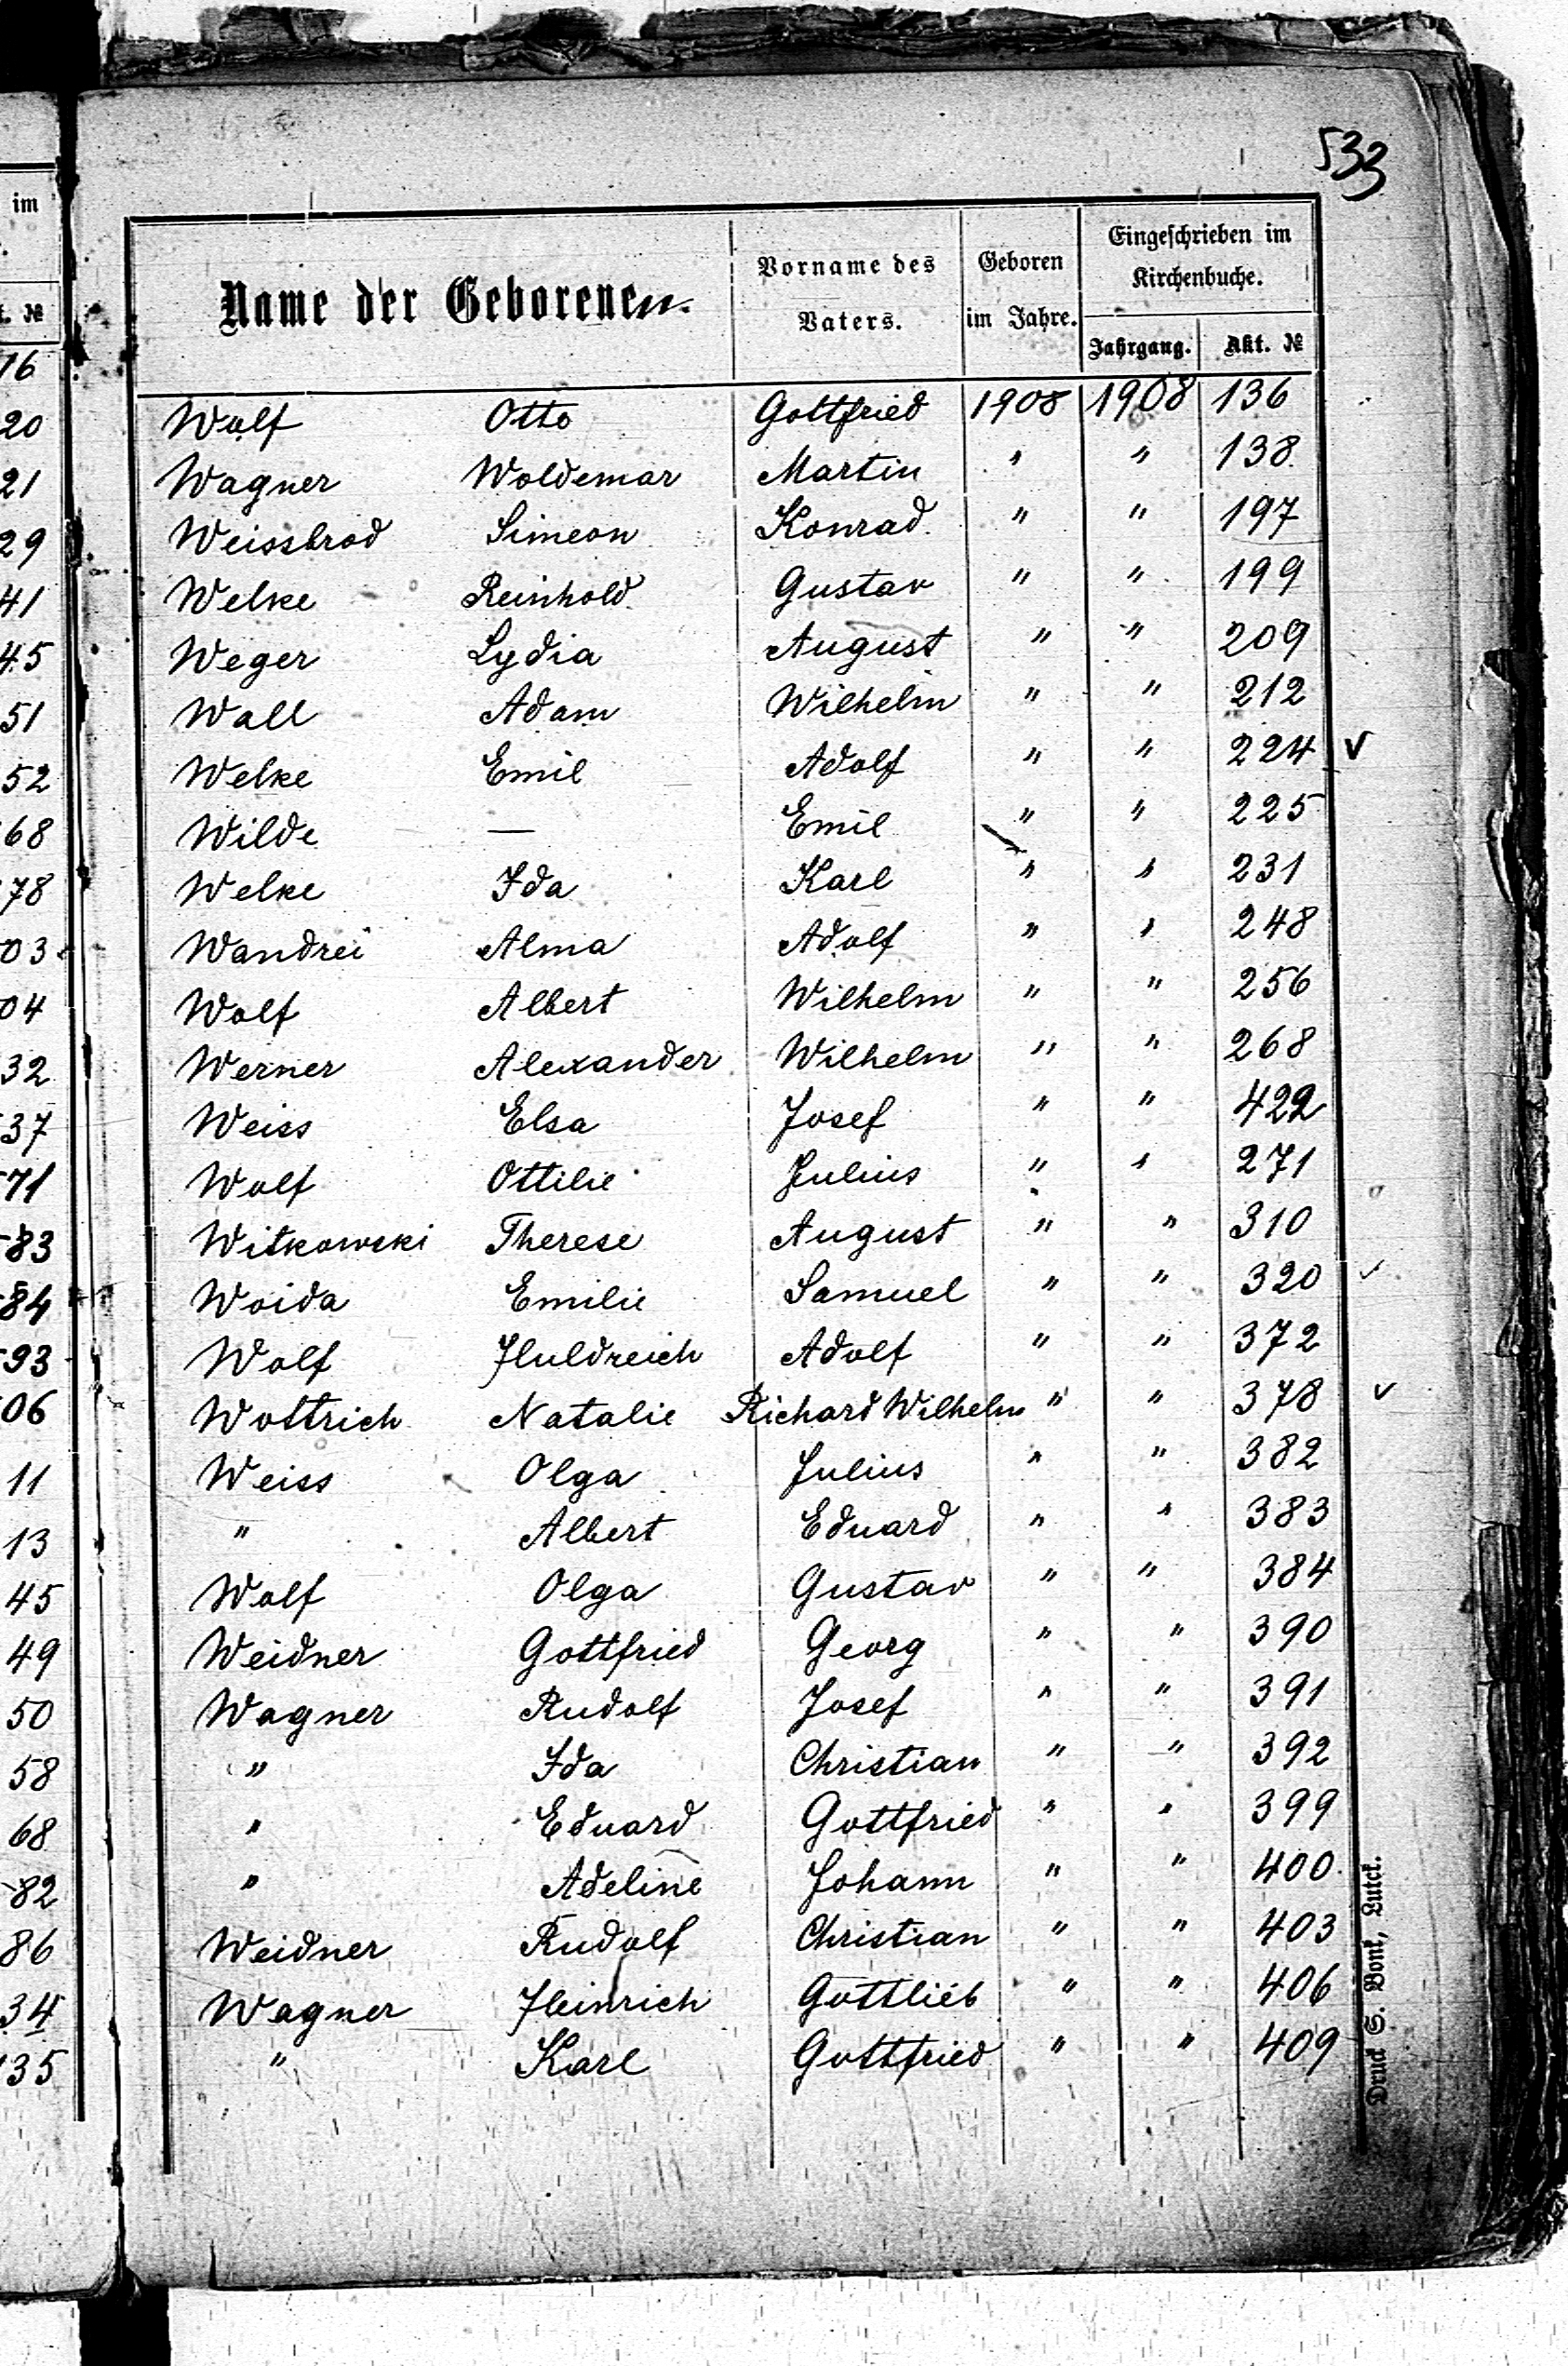 533
im
t. №
16
20
21
29
41
45
51
52
68
78
03
04
32
37
71
83
84
93
06
11
13
45
49
50
58
68
82
86
34
35
Name der Geborenen.
Vorname des Vaters.
Geboren im Jahre.
Eingeschrieben im Kirchenbuche.
Jahrgang. Akt. №
Wolf Otto Gottfried 1908 1908 136
Wagner Woldemar Martin " " 138
Weissbrod Simeon Konrad " " 197
Welke Reinhold Gustav " " 199
Weger Lydia August " " 209
Wall Adam Wilhelm " " 212
Welke Emil Adolf " " 224 ✓
Wilde — Emil " " 225
Welke Ida Karl " " 231
Wandrei Alma Adolf " " 248
Wolf Albert Wilhelm " " 256
Werner Alexander Wilhelm " " 268
Weiss Elsa Josef " " 422
Wolf Ottilie Julius " " 271
Witkowski Therese August " " 310
Woida Emilie Samuel " " 320 ✓
Wolf Huldreich Adolf " " 372
Wottrich Natalie Richard Wilhelm " " 378 ✓
Weiss Olga Julius " " 382
" Albert Eduard " " 383
Wolf Olga Gustav " " 384
Weidner Gottfried Georg " " 390
Wagner Rudolf Josef " " 391
" Ida Christian " " 392
" Eduard Gottfried " " 399
" Adeline Johann " " 400
Weidner Rudolf Christian " " 403
Wagner Heinrich Gottlieb " " 406
" Karl Gottfried " " 409
Druck S. Bonk, Lutck.